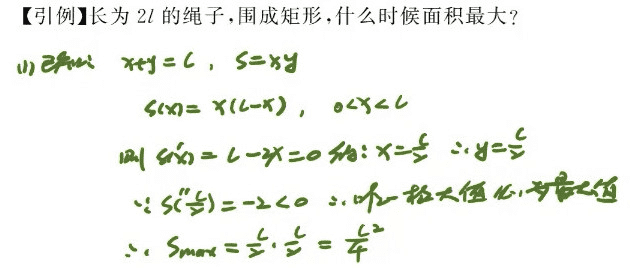 【引例】长为 2l 的绳子,围成矩形,什么时候面积最大?
(1) 已知: x+y=L , S=xy
S(x)= x(L-x) , 0<x<L
则 S'(x) = L-2x=0 得: x=L/2 ∴ y=L/2
∵ S''(L/2)=-2<0 ∴ 唯一极大值点,为最大值
∴ Smax = L/2 · L/2 = L²/4